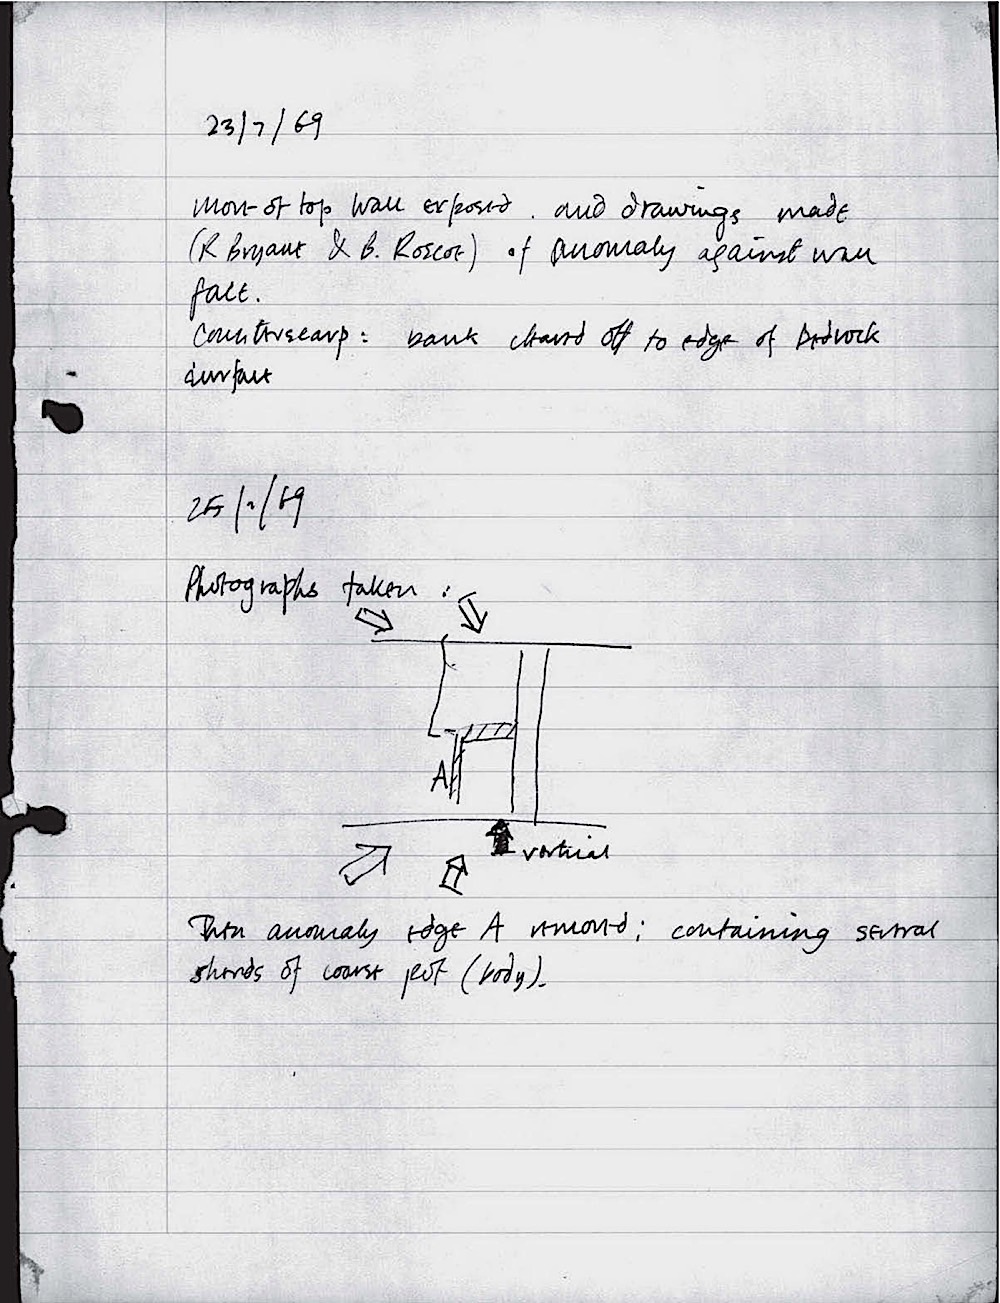 23/7/69
More of top wall exposed. and drawings made
(R Bryant & B. Roscoe) of anomaly against wall
face.
Counterscarp: bank cleared off to edge of bedrock
surface
25/7/69
Photographs taken:
A
vertical
Then anomaly edge A removed; containing several
sherds of coarse pot (body).